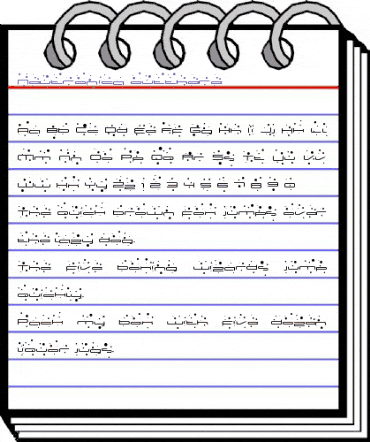 Aa Bb Cc Dd Ee Ff Gg Hh Ii Jj Kk Ll
Mm Nn Oo Pp Qq Rr Ss Tt Uu Vv
Ww Xx Yy Zz 1 2 3 4 5 6 7 8 9 0
The quick brown fox jumps over
the lazy dog.
The five boxing wizards jump
quickly.
Pack my box with five dozen
liquor jugs.